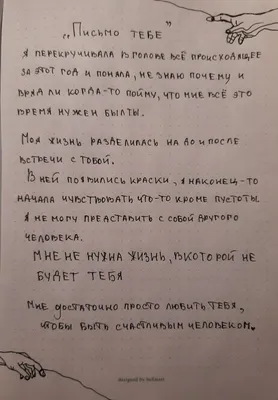 „Письмо тебе”
Я перекручивала в голове всё происходящее
за этот год и поняла, не знаю почему и
вряд ли когда-то пойму, что мне всё это
время нужен был ты.
Моя жизнь разделилась на до и после
встречи с тобой.
В ней появились краски, я наконец-то
начала чувствовать что-то кроме пустоты.
Я не могу представить с собой другого
человека.
Мне не нужна жизнь, в которой не
будет тебя
Мне достаточно просто любить тебя,
чтобы быть счастливым человеком.